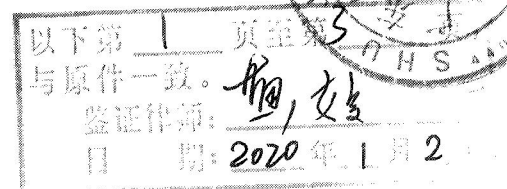 以下第 1 页至第 3 页
与原件一致。
鉴证律师:
日 期: 2020 年 1 月 2
S H U